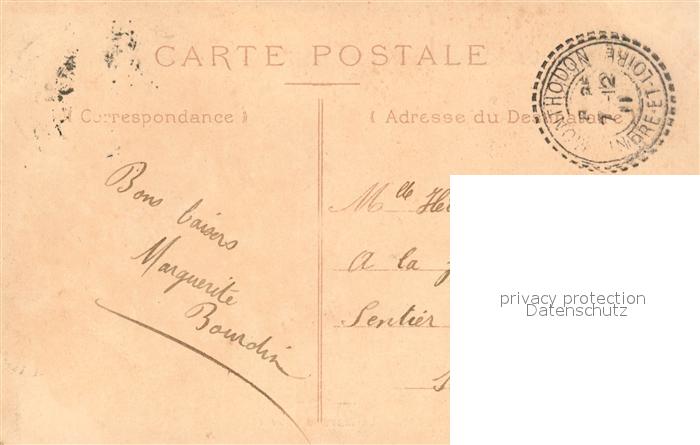 CARTE POSTALE
( Correspondance )
( Adresse du Destinataire )
MONTHODON
INDRE-ET-LOIRE
7 -12
11
Bons baisers
Marguerite
Bourdin
Mlle
A la
Sentier
privacy protection
Datenschutz